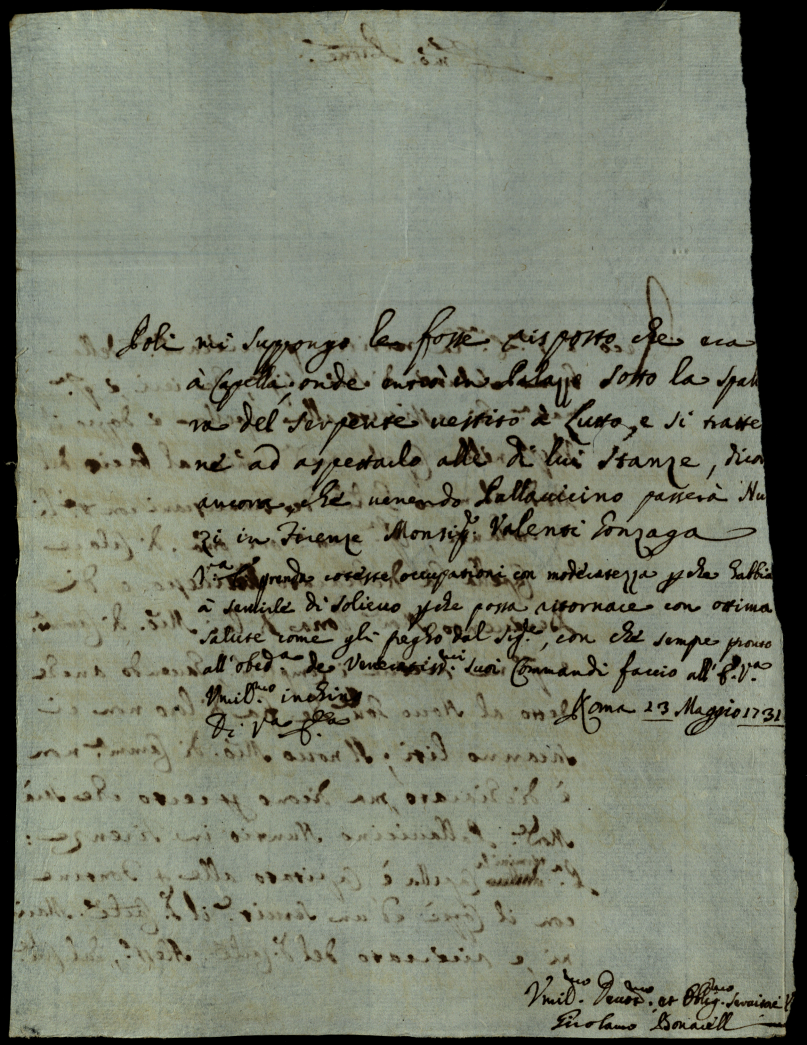 Poli mi suppongo le fosse risposto che era
à Capella, onde entrò in Palazzo sotto la spal
ra del Serpente vestito à Lutto, e si tratte
nè ad aspettarlo alle di lui Stanze, dico
ancora, che venendo Pallavicino passerà Nu
zi in Firenze Monsig.r Valenti Gonzaga
V.ra prenda coteste occupazioni con moderatezza che habbia
à servirle di solievo che possa ritornare con ottima
salute come gli prego dal Sig.re, con che sempre pronto
all'obed.a de Veneratiss.mi suoi Commandi faccio all' V.a
Vmil.mo inchino
Di V.a Roma 23 Maggio 1731
Vmil.mo Devot.mo et Oblig.mo Servitore
Girolamo